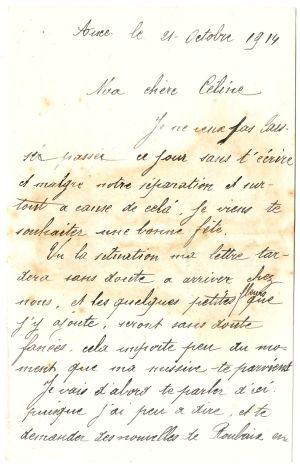 le 21 Octobre 1914
Ma chère Céline
Je ne veux pas lais-
ser passer ce jour sans t'écrire
et malgré notre séparation et sur-
tout a cause de celà, Je viens te
souhaiter une bonne fête.
Vu la situation ma lettre tar-
dera sans doute a arriver chez
nous, et les quelques petites fleurs que
j'y ajoute, seront sans doute
fanées, cela importe peu du mo-
ment que ma missive te parvient
Je vais d'abord te parler d'ici
puisque j'ai peu a dire, et te
demander des nouvelles de Roubaix en